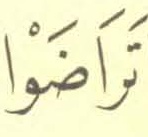 تَرَاضَوْا